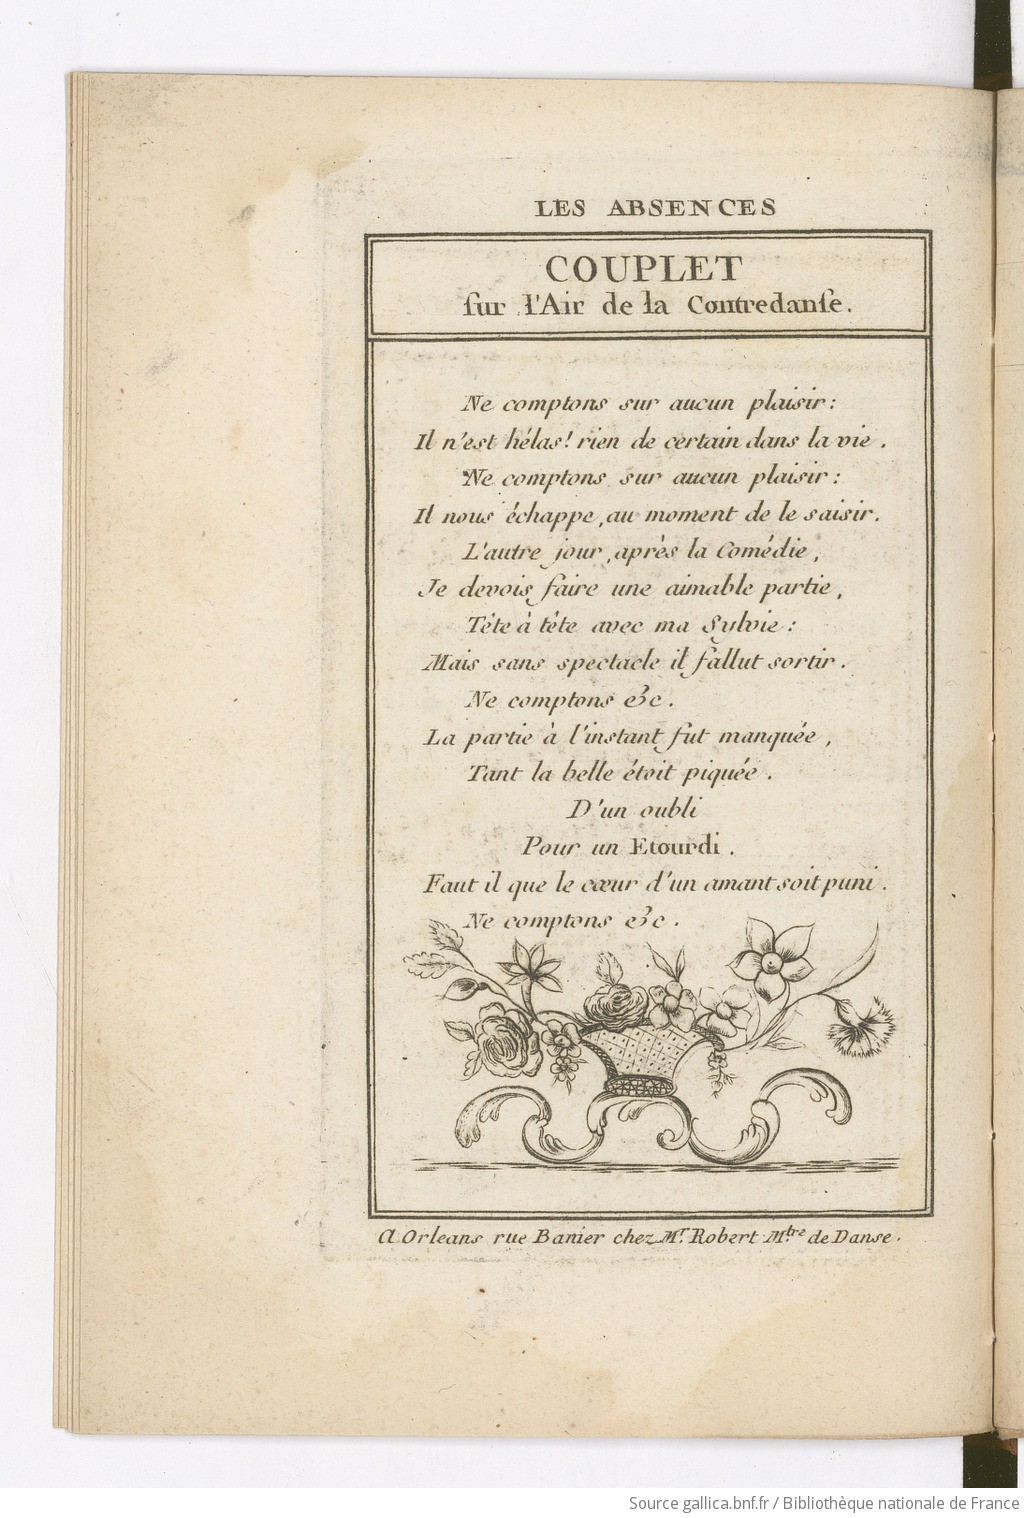 LES ABSENCES
COUPLET
ſur l'Air de la Contredanſe.
Ne comptons sur aucun plaisir :
Il n'est hélas! rien de certain dans la vie .
Ne comptons sur aucun plaisir :
Il nous échappe, au moment de le saisir.
L'autre jour, après la Comédie ,
Je devois faire une aimable partie ,
Tête à tête avec ma Sylvie :
Mais sans spectacle il fallut sortir .
Ne comptons &c .
La partie à l'instant fut manquée ,
Tant la belle étoit piquée .
D'un oubli
Pour un Etourdi .
Faut il que le cœur d'un amant soit puni .
Ne comptons &c .
A Orleans rue Banier chez Mr. Robert Mtre. de Danse .
Source gallica.bnf.fr / Bibliothèque nationale de France